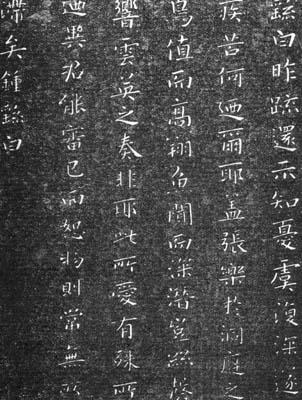 繇白昨疏還示知憂虞復深遂
疾苦何迺爾耶蓋張樂於洞庭之
鳥值而高翔魚聞而深潛豈絲磬
響雲英之奏非耶此所愛有殊所
迺異君能審己而恕物則常無所
滯矣鍾繇白